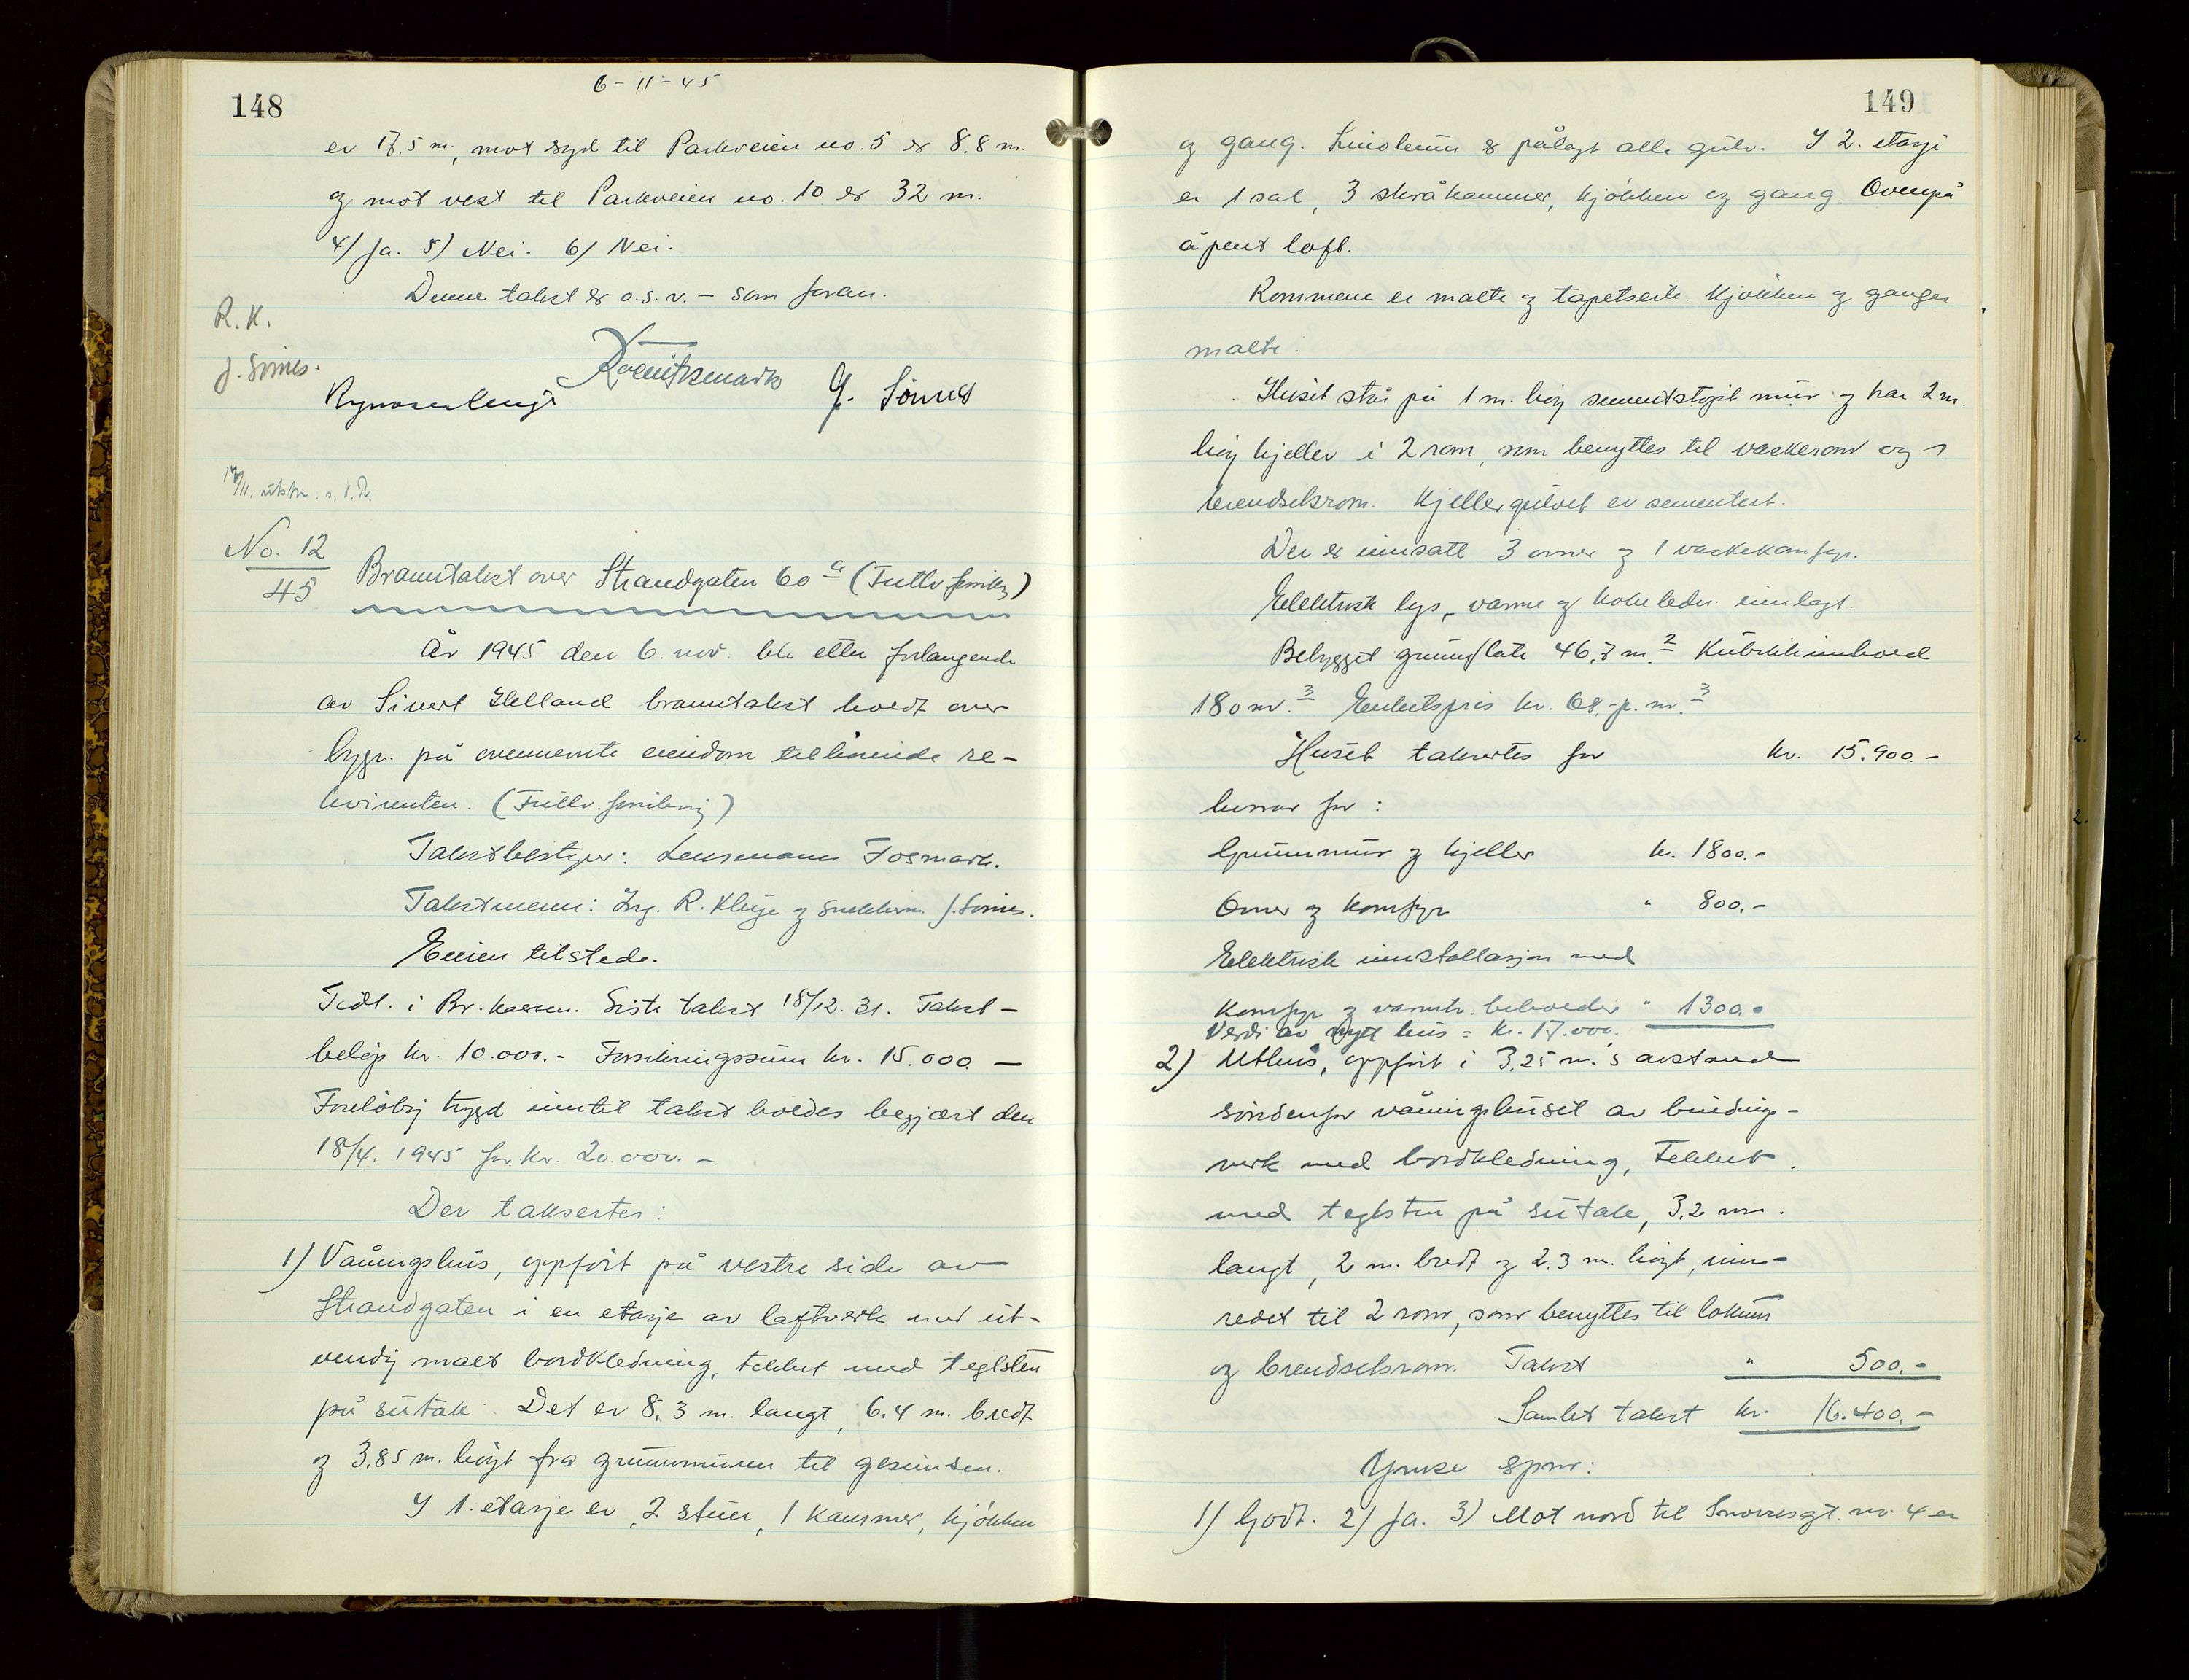 148
6-11-45
er 17.5 m., mot syd til Parkveien no. 5 er 8.8 m.
og mot vest til Parkveien no. 10 er 32 m.
4) Ja. 5) Nei. 6) Nei.
Denne takst er o.s.v. - som foran.
R.K.
J. Sönnes.
J. Sönnes
14/11. utskr.
No. 12
45
Branntakst over Strandgaten 60 a (Fullv. forsikring)
År 1945 den 6. nov. ble etter forlangende
av Sivert Helland branntakst holdt over
bygn. på ovennevnte eiendom tilhörende re-
kvirenten. (Fullv. forsikring)
Takstbestyrer: Lensmann Fosmark.
Takstmenn: Ing. R. Kluge og snekkerm. J. Sönnes.
Eieren tilstede.
Tidl. i Br.kassen. Siste takst 18/12. 31. Takst-
belöp kr. 10.000.- Forsikringssum kr. 15.000 -
Forelöbig trygd inntil takst holdes begjært den
18/4. 1945 for kr. 20.000. -
Der taksertes:
1) Våningshus, oppfört på vestre side av
Strandgaten i en etasje av laftverk med ut-
vendig malt bordkledning, tekket med teglsten
på sutak. Det er 8.3 m. langt, 6.4 m. bredt
og 3.85 m. höyt fra grunnmuren til gesimsen.
I 1. etasje er 2 stuer, 1 kammer, kjökken
149
og gang. Linoleum er pålagt alle gulv. I 2. etasje
er 1 sal, 3 skråkammer, kjökken og gang. Ovenpå
åpent loft.
Rommene er malte og tapetserte. Kjökken og ganger
malte.
Huset står på 1 m. höy sementstöpt mur og har 2 m.
höy kjeller i 2 rom, som benyttes til vaskerom og
brendselsrom. Kjellergulvet er sementert.
Der er innsatt 3 ovner og 1 vaskekomfyr.
Elektrisk lys, varme og kokeledn. innlagt.
Bebygget grunnflate 46,7 m.2 Kubikkinnhold
180 m.3 Enhetspris kr. 68,- p. m.3
Huset taksertes for kr. 15.900.-
hvorav for:
Grunnmur og kjeller kr. 1800.-
Ovner og komfyr " 800.-
Elektrisk innstallasjon med
komfyr og varmtv. beholder " 1300.-
Verdi av nytt hus = kr. 17.000.
2) Uthus, oppfört i 3.25 m.s avstand
söndenfor våningshuset av bindings-
verk med bordkledning, tekket
med teglsten på sutak, 3.2 m.
langt, 2 m. bredt og 2.3 m. höyt, inn-
redet til 2 rom, som benyttes til lokum
og brendselsrom. Takst " 500.-
Samlet takst kr. 16.400.-
Ymse spm:
1) Godt. 2) Ja. 3) Mot nord til Snorresgt. no. 4 er